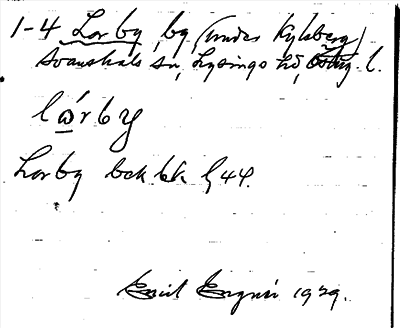 1-4 Lorby, by (under Kylsberg)
Svanshals sn, Lysings hd, Östg l.
lǫ́rby
Lorby bck bk f 44.
Emil 1929.